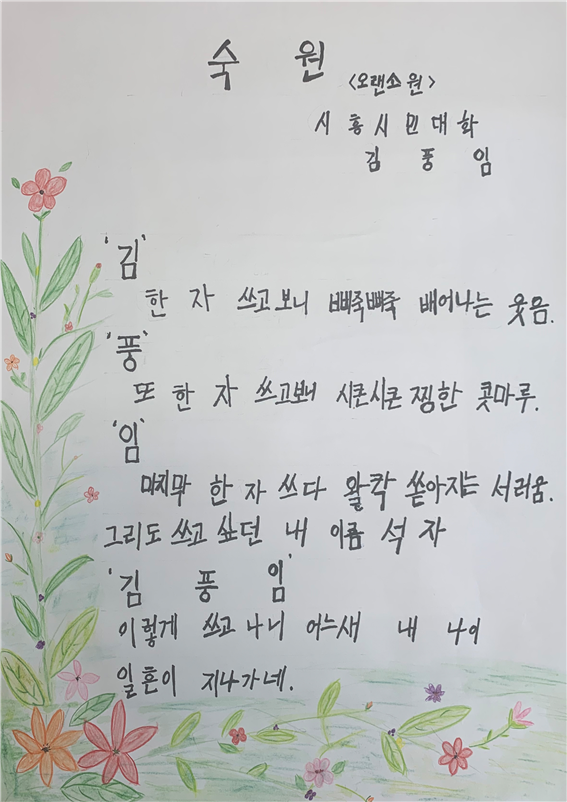 숙 원
<오랜소원>
시흥시민대학
김 풍 임
'김'
한 자 쓰고보니 삐쭉삐쭉 배어나는 웃음.
'풍'
또 한 자 쓰고보니 시큰시큰 찡한 콧마루.
'임'
마지막 한 자 쓰다 왈칵 쏟아지는 서러움.
그리도 쓰고 싶던 내 이름 석 자
'김 풍 임'
이렇게 쓰고 나니 어느새 내 나이
일흔이 지나가네.